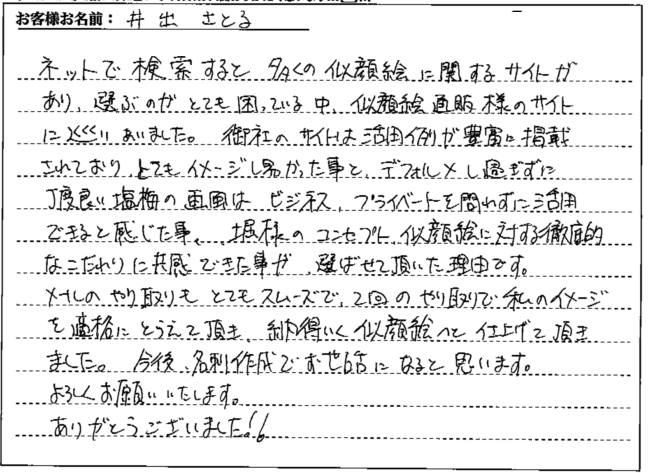 お客様お名前： 井出 さとる
ネットで検索すると 多くの似顔絵に関するサイトが
あり、選ぶのが とても困っている中、似顔絵通販様のサイト
に いあいました。 御社のサイトは活用例が豊富に掲載
されており、とてもイメージし易かった事と、デフォルメし過ぎずに
丁度良い塩梅の画風は ビジネス、プライベートを問わずに活用
できると感じた事、 堀様のコンセプト、似顔絵に対する徹底的
なこだわりに共感できた事が、選ばせて頂いた理由です。
メールのやり取りも とてもスムーズで、2回のやり取りで私のイメージ
を適格にとらえて頂き、納得いく似顔絵へと仕上げて頂き
ました。 今後、名刺作成でお世話になると思います。
よろしくお願いいたします。
ありがとうございました!!